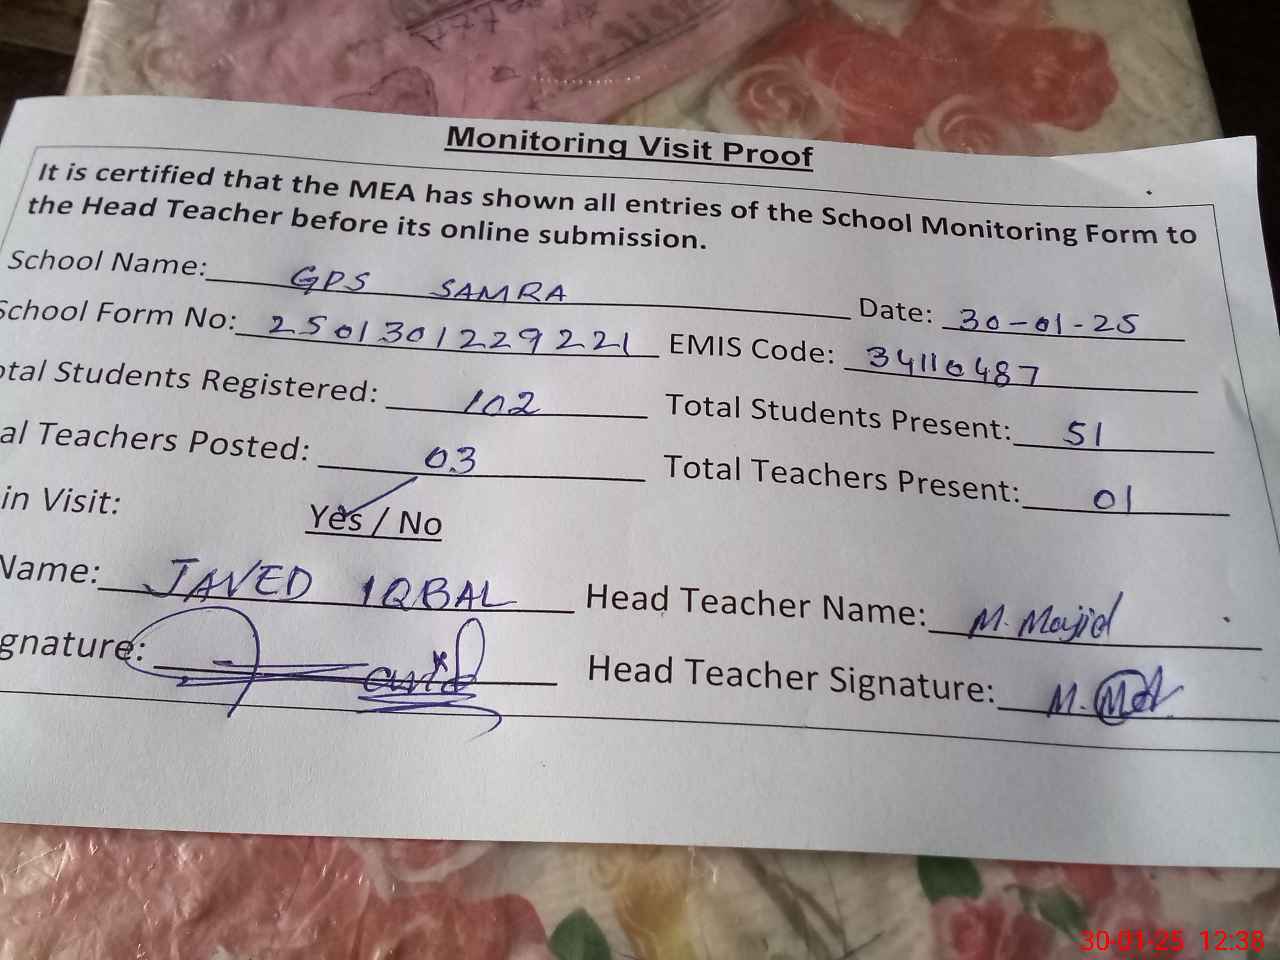 Monitoring Visit Proof
It is certified that the MEA has shown all entries of the School Monitoring Form to
the Head Teacher before its online submission.
School Name: GPS SAMRA Date: 30-01-25
School Form No: 2501301229221 EMIS Code: 34110487
otal Students Registered: 102 Total Students Present: 51
al Teachers Posted: 03 Total Teachers Present: 01
in Visit: Yes / No
Name: JAVED IQBAL Head Teacher Name: M. Majid
gnature: Head Teacher Signature: M.
30-01-25 12:38